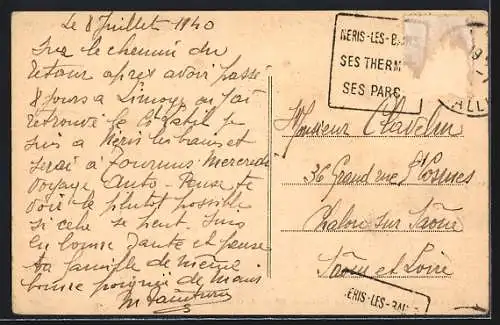 Le 8 Juillet 1940
Sur le chemin du
retour apres avoir passé
8 jours à Limoges ou j'ai
retrouvé le
suis a Néris les bains et
serai a Tournus Mercredi
voyage Auto - Pense te
voir le plutot possible
si cela se peut. Suis
en bonne santé et pense
ta famille de même
bonne poignée de main
NERIS-LES-BAINS
SES THERM
SES PARC
Monsieur
36 Grand rue St Cosmes
Chalon sur Saône
Saône et Loire
NERIS-LES-BAI